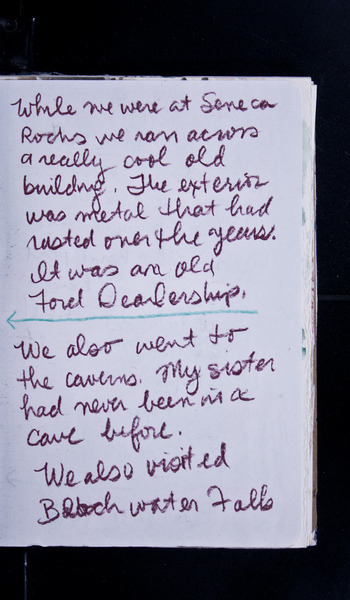 While we were at Seneca
Rocks we ran across
a really cool old
building. The exterior
was metal that had
rusted over the years.
It was an old
Ford Dealership.
We also went to
the caverns. My sister
had never been in a
cave before.
We also visited
Black water Falls